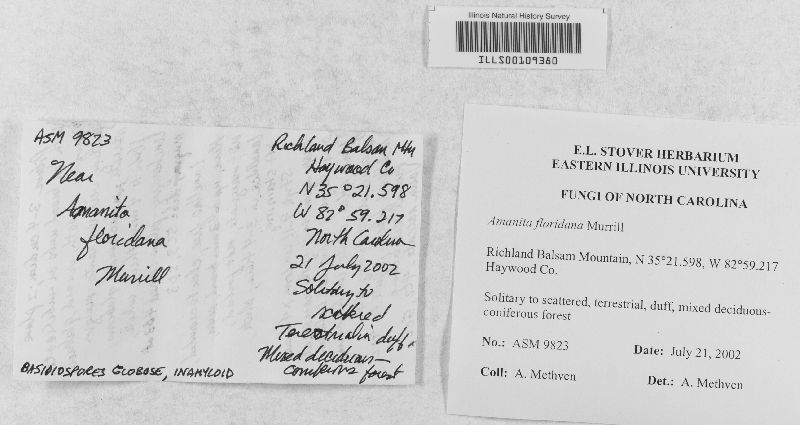 Illinois Natural History Survey
ILLS00109380
ASM 9823
Near
Amanita
floridana
Murrill
BASIDIOSPORES GLOBOSE, INAMYLOID
Richland Balsam Mtn
Haywood Co
N 35°21.598
W 82°59.217
North Carolina
21 July 2002
Solitary to
scattered
Terrestrial in duff
Mixed deciduous-
coniferous forest
E.L. STOVER HERBARIUM
EASTERN ILLINOIS UNIVERSITY
FUNGI OF NORTH CAROLINA
Amanita floridana Murrill
Richland Balsam Mountain, N 35°21.598, W 82°59.217
Haywood Co.
Solitary to scattered, terrestrial, duff, mixed deciduous-
coniferous forest
No.: ASM 9823 Date: July 21, 2002
Coll: A. Methven Det.: A. Methven